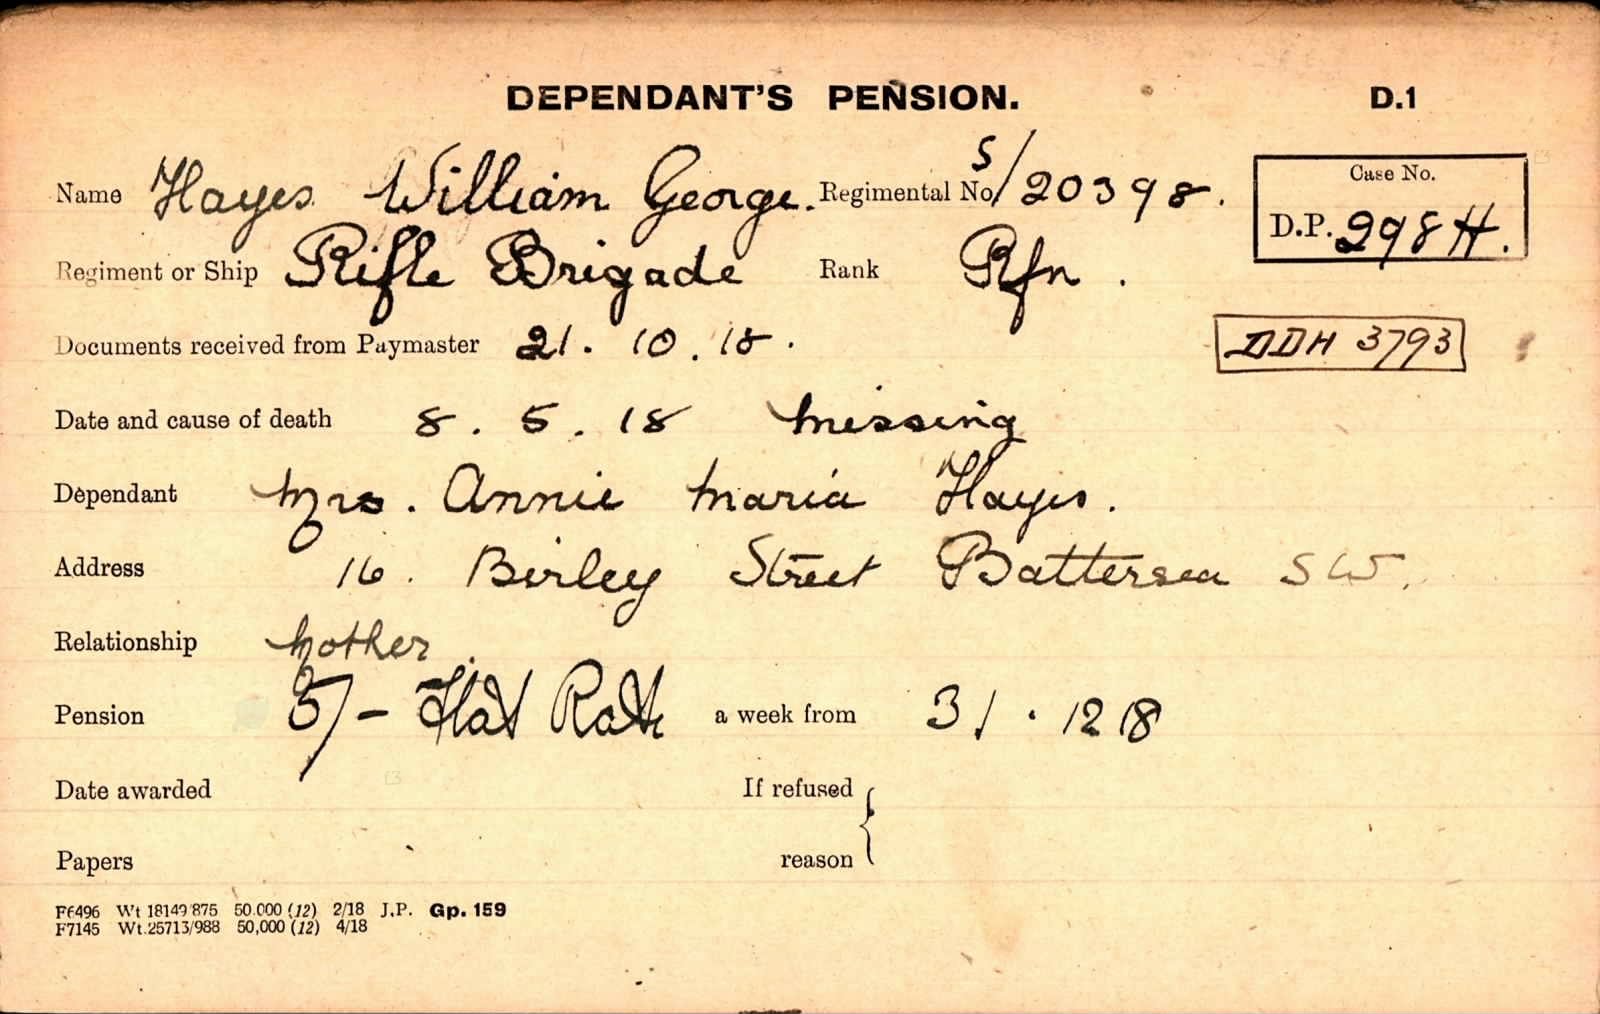 DEPENDANT'S PENSION. D.1
Name Hayes William George. Regimental No S/20398.
Case No.
D.P. 298H.
Regiment or Ship Rifle Brigade Rank Rfn.
Documents received from Paymaster 21.10.18.
DDH 3793
Date and cause of death 8.5.18 Missing
Dependant Mrs. Annie Maria Hayes.
Address 16. Birley Street Battersea SW.
Relationship Mother.
Pension 5/- Flat Rate a week from 31.12 18
Date awarded If refused
Papers reason
F6496 Wt 18149/875 50.000 (12) 2/18 J.P. Gp. 159
F7145 Wt.25713/988 50,000 (12) 4/18